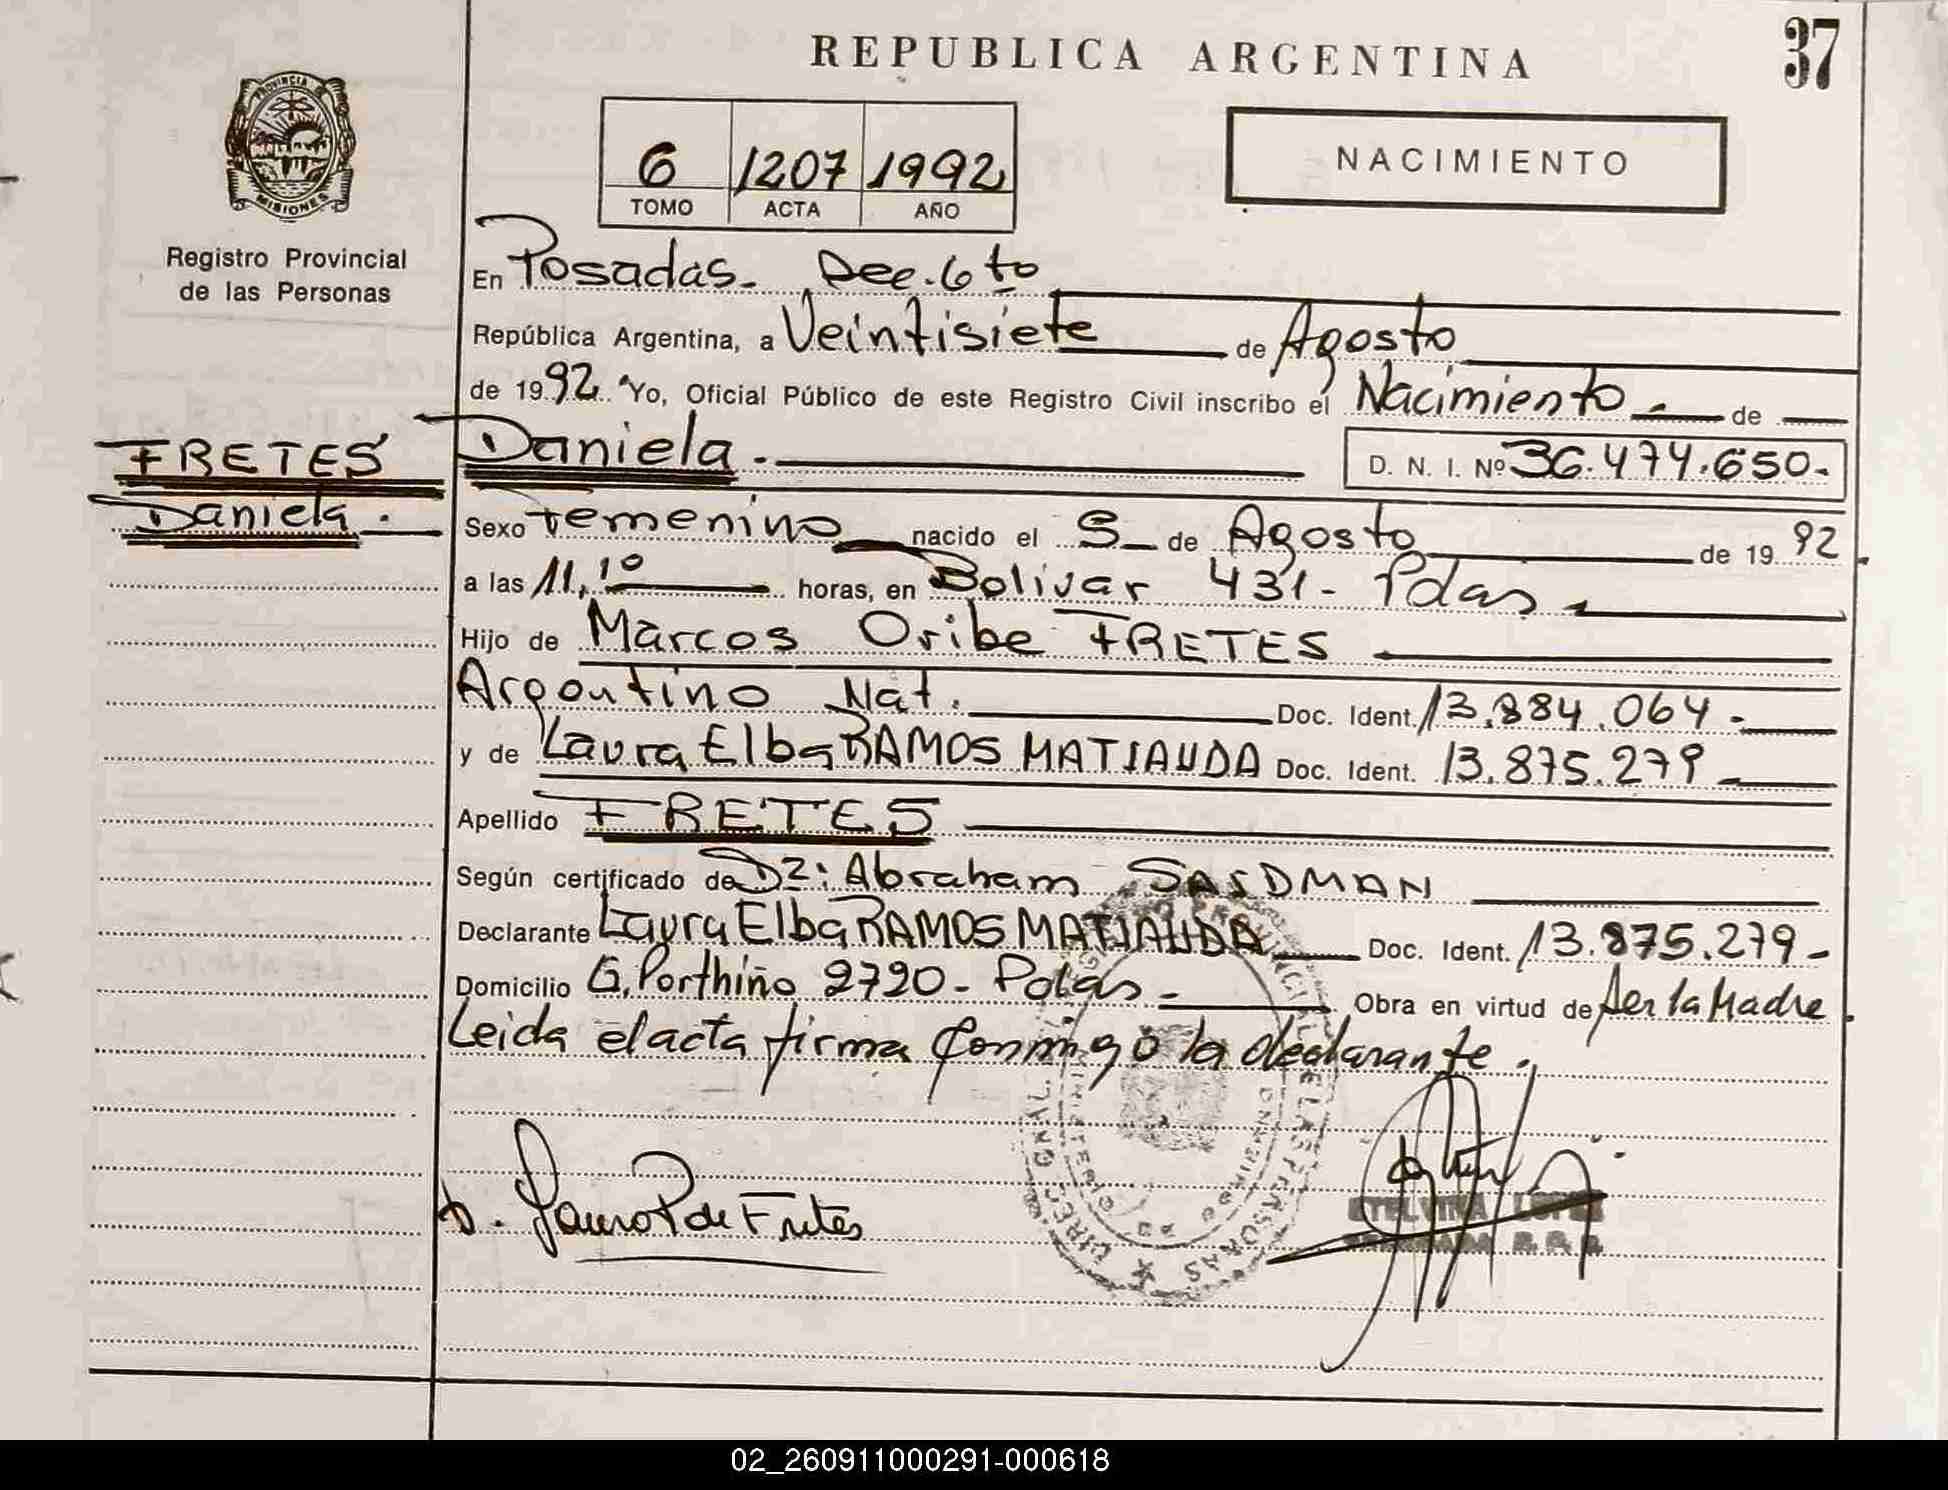 REPUBLICA ARGENTINA
37
PROVINCIA DE MISIONES
6 1207 1992
TOMO ACTA AÑO
NACIMIENTO
Registro Provincial
de las Personas
En Posadas. Dee. 6to
República Argentina, a Veintisiete de Agosto
de 1992. Yo, Oficial Público de este Registro Civil inscribo el Nacimiento de
FRETES
Daniela.
Daniela. D. N. I. Nº 36.474.650.
Sexo Femenino nacido el 5 de Agosto de 1992.
a las 11,10 horas, en Bolivar 431 - Pdas
Hijo de Marcos Oribe FRETES
Argentino Nat. Doc. Ident. 13.884.064.
y de Laura Elba RAMOS MATIAUDA Doc. Ident. 13.875.279
Apellido FRETES
Según certificado de Dr: Abraham SASDMAN
Declarante Laura Elba RAMOS MATIAUDA Doc. Ident. 13.875.279-
Domicilio G. Porthiño 2720 - Pdas - Obra en virtud de ser la Madre.
Leida el acta firma conmigo la declarante.
Laura R de Fretes
ETELVINA LOPEZ
02_260911000291-000618